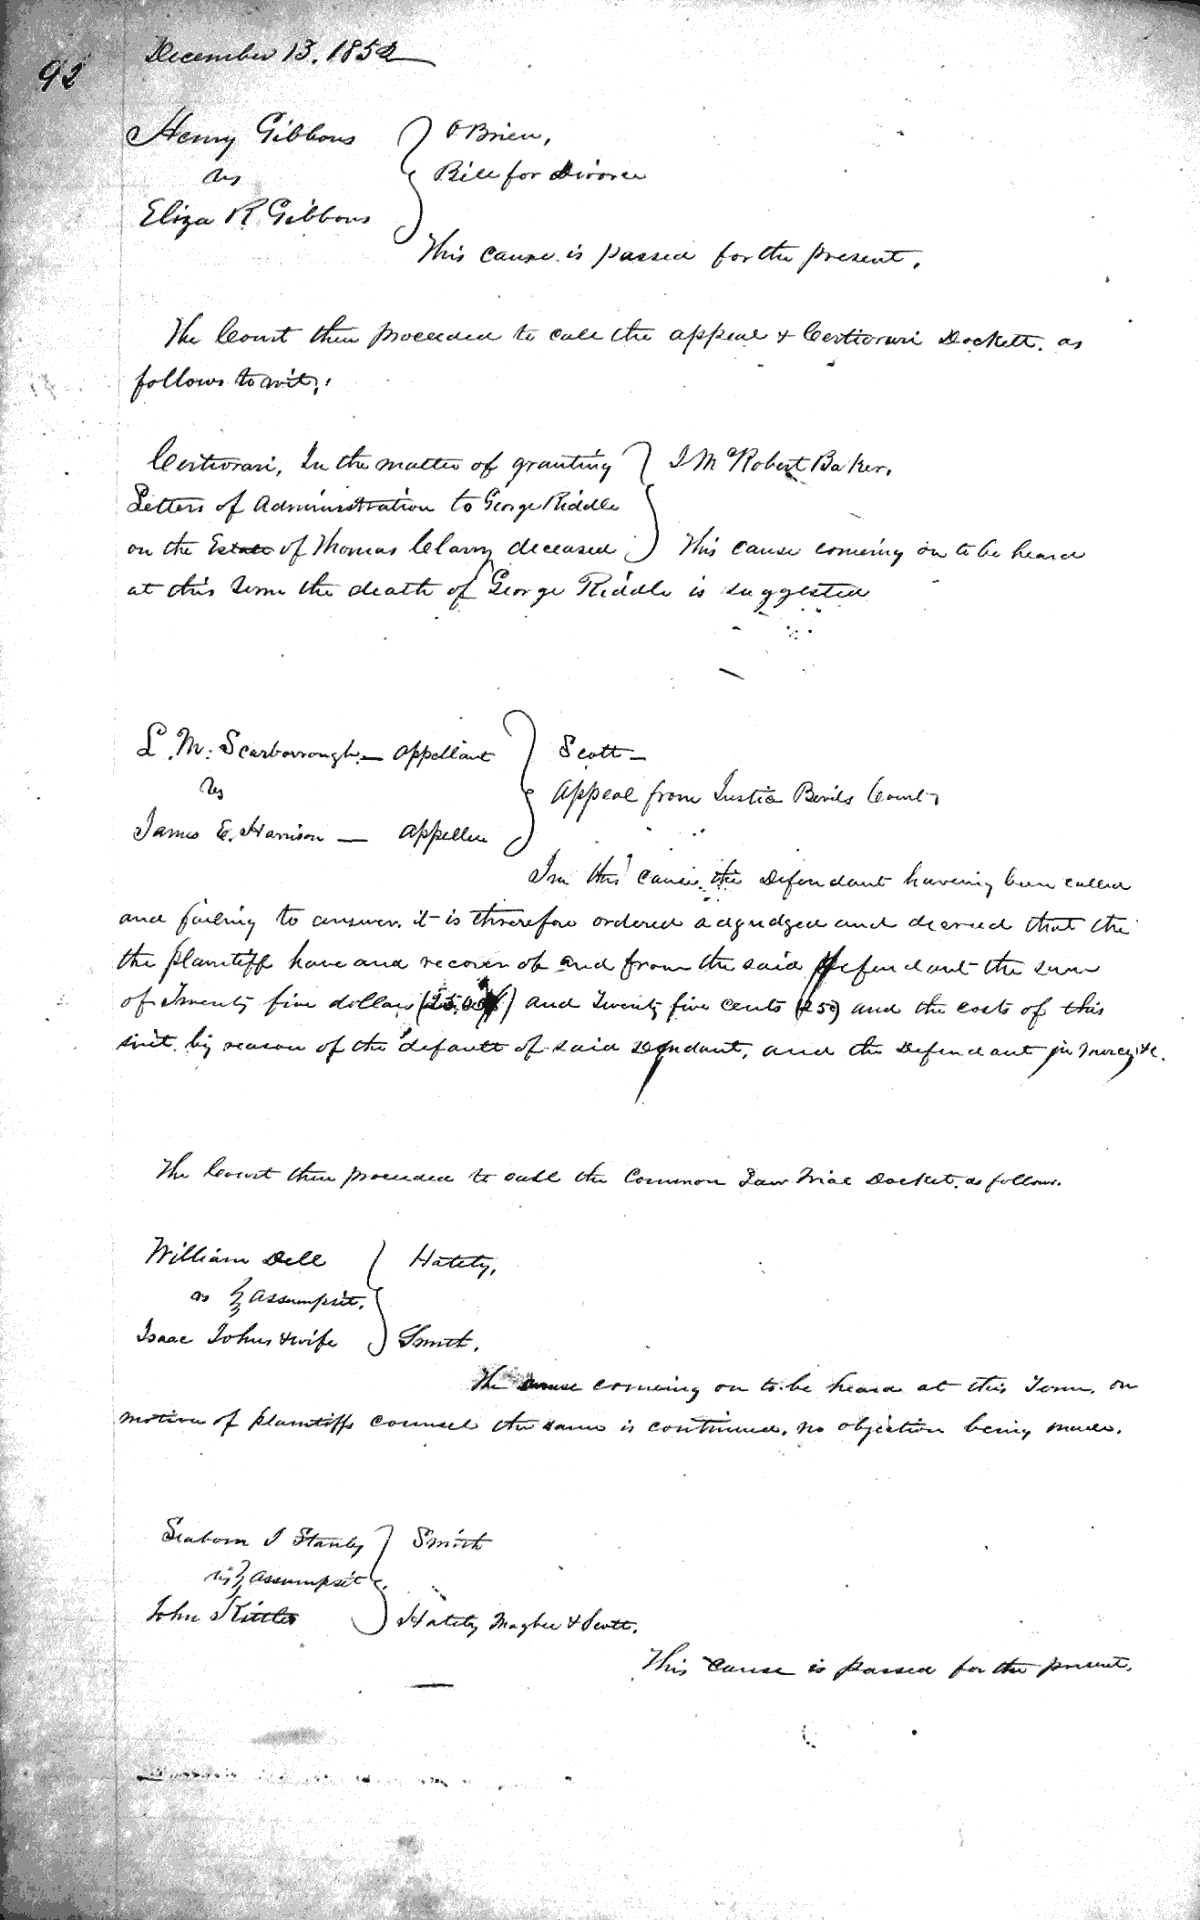 92
December 13. 1852
Henry Gibbons
vs
Eliza R Gibbons
O'Brien,
Bill for Divorce
This cause is passed for the present.
The Court then proceeded to call the appeal & Certiorari Dockett. as
follows to wit;
Certiorari, In the matter of granting
Letters of Administration to George Riddle
on the Estate of Thomas Clary deceased
J McRobert Baker.
This cause comeing on to be heard
at this Term the death of George Riddle is suggested
L. M. Scarborrough — appellant
vs
James E. Harrison — appellee
Scott —
appeal from Justice Court
In this cause the Defendant haveing been called
and failing to answer. it is therefore ordered adgudged and decreed that the
the plaintiff have and recover of and from the said Defendant the sum
of Twenty five dollars (25.00) and Twenty five cents (25c) and the costs of this
suit. by reason of the default of said Defndant, and the Defendant in mercy &c.
The Court then proceeded to call the Common Law Trial Docket. as follows.
William Dell
vs } assumpsit.
Isaac Johns & wife
Hately,
Smith.
The cause comeing on to be heard at this Term. on
motion of plaintiffs counsel the same is continued, no objection being made.
Seaborn J Stanly
vs } assumpsit
John
Smith
Hately Magbee & Scott.
This cause is passed for the present.